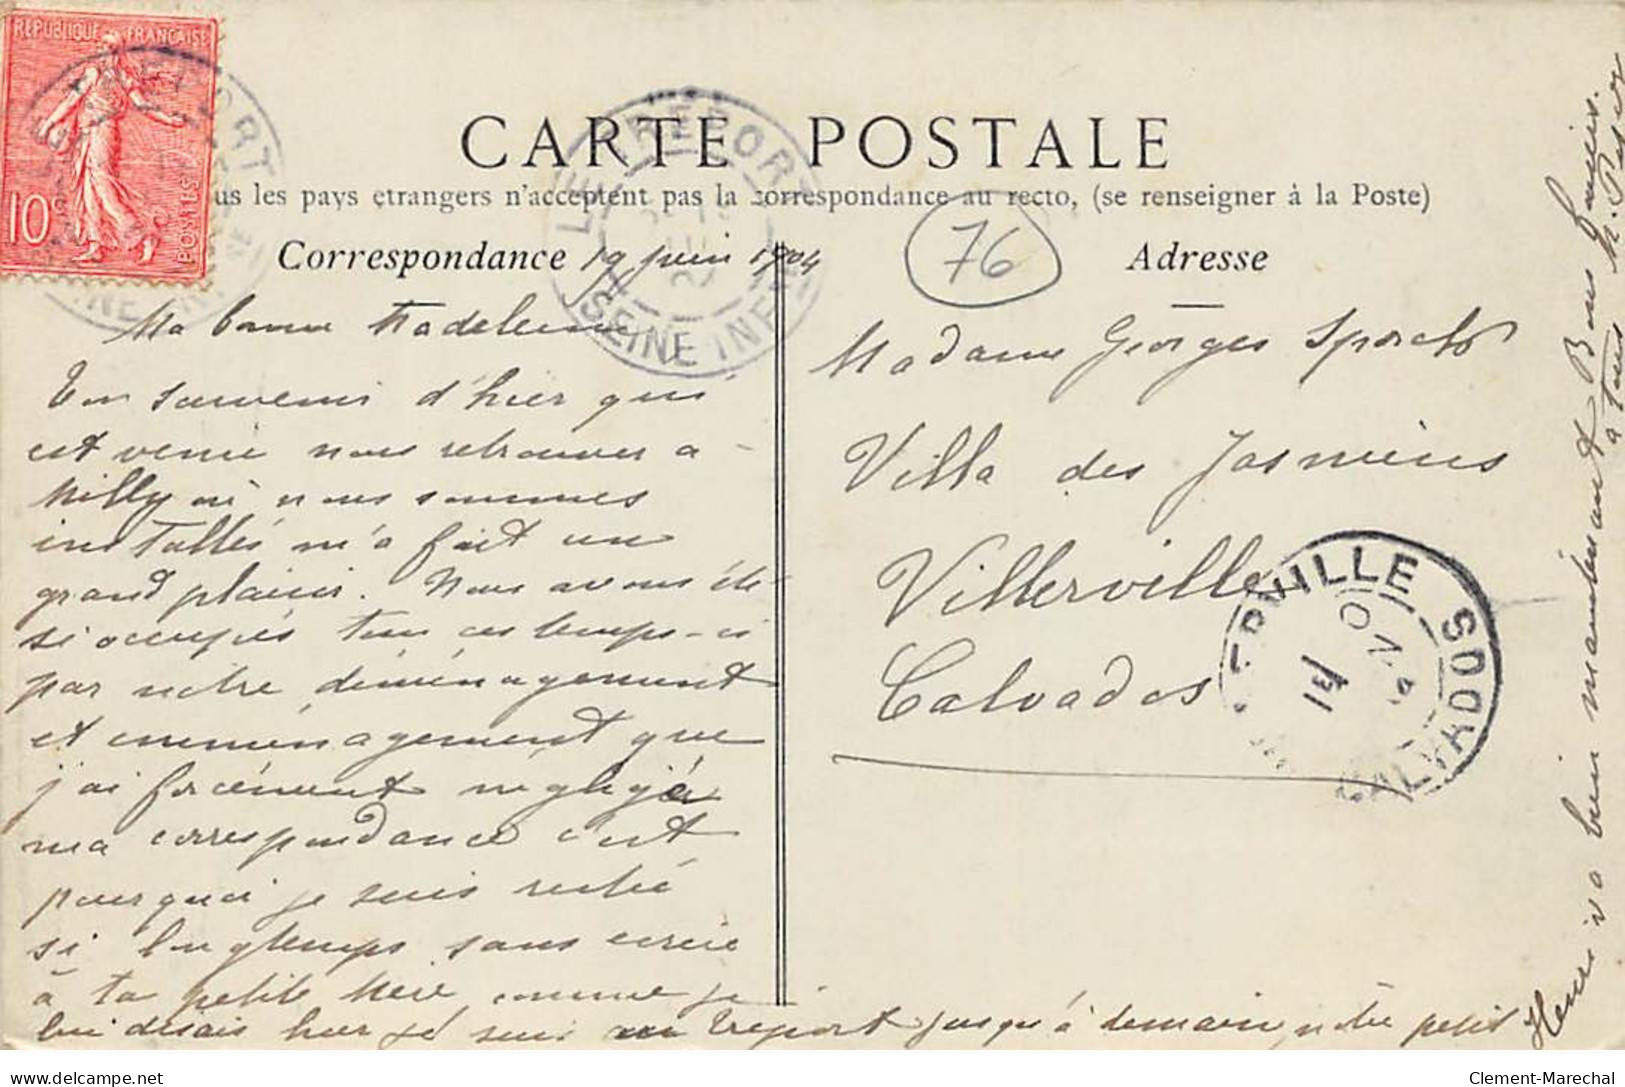 REPUBLIQUE FRANÇAISE
10
POSTES
LE TREPORT
SEINE INFRE
CARTE POSTALE
us les pays étrangers n'acceptent pas la correspondance au recto, (se renseigner à la Poste)
76
Correspondance 19 juin 1904
Ma bonne Madeleine
Ton souvenir d'hier qui
est venu nous retrouver à
Milly où nous sommes
installés m'a fait un
grand plaisir. Nous avons été
si occupés tous ces temps-ci
par notre déménagement
et emménagement que
j'ai forcément négligé
ma correspondance c'est
pourquoi je suis resté
si longtemps sans écrire
à ta petite Mère comme je
lui disais hier je suis au Tréport jusqu'à demain, notre petit
Henri va bien maintenant Bons
à tous M.
Adresse
Madame Georges
Villa des Jasmins
Villerville
Calvados
ERVILLE
CALVADOS
Clement-Marechal